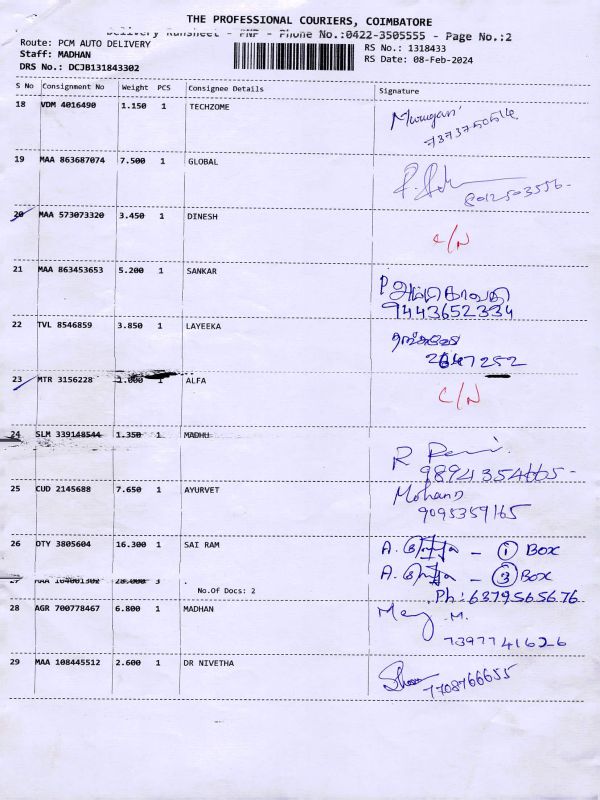 THE PROFESSIONAL COURIERS, COIMBATORE
Delivery Runsheet - PNP - Phone No.:0422-3505555 - Page No.:2
Route: PCM AUTO DELIVERY
RS No.: 1318433
Staff: MADHAN
RS Date: 08-Feb-2024
DRS No.: DCJB131843302
S No Consignment No Weight PCS Consignee Details Signature
18 VDM 4016490 1.150 1 TECHZOME
Murugan
7373750514
19 MAA 863687074 7.500 1 GLOBAL
8012503556-
20 MAA 573073320 3.450 1 DINESH
C/N
21 MAA 863453653 5.200 1 SANKAR
P
9443652334
22 TVL 8546859 3.850 1 LAYEEKA
2647252
23 MTR 3156228 1.000 1 ALFA
C/N
24 SLM 339148544 1.350 1 MADHU
R
9894354665-
25 CUD 2145688 7.650 1 AYURVET
Mohan
9095359165
26 DTY 3805604 16.300 1 SAI RAM
A. - 1 BOX
27 MAA 164001302 28.000 3
A. - 3 BOX
No.Of Docs: 2
Ph: 6379565676
28 AGR 700778467 6.800 1 MADHAN
M.
7397741626
29 MAA 108445512 2.600 1 DR NIVETHA
7708766655